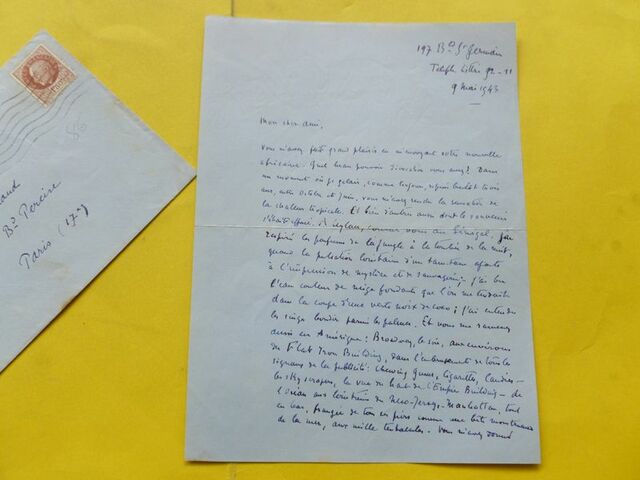 197 Bd St Germain
Téléph. Littré 92-11
9 mai 1943
Mon cher ami,
Vous m'avez fait grand plaisir en m'envoyant votre nouvelle
africaine. Quel beau pouvoir d'évocation vous avez! Dans
un moment où je gelais, comme toujours, depuis bientôt trois
ans, entre Octobre et Juin, vous m'avez rendu la sensation de
la chaleur tropicale. Et bien d'autres aussi dont le souvenir
s'était effacé. À Ceylan, comme vous au Sénégal, j'ai
respiré les parfums de la jungle à la tombée de la nuit,
quand la pulsation lointaine d'un tam-tam ajoute
à l'impression de mystère et de sauvagerie; j'ai bu
l'eau couleur de neige fondante que l'on me tendait
dans la coupe d'une verte noix de coco; j'ai entendu
les singes parmi les palmes. Et vous me ramenez
aussi en Amérique: Broadway, le soir, aux environs
du Flat Iron Building, dans l'embrasement de tous les
signaux de la publicité: Chewing Gums, Cigarettes, Candies —
les skyscrapers, la vue du haut de l'Empire Building — de
l'Océan aux lointains de New-Jersey, Manhattan, tout
en bas, frangée de tous ses piers comme une bête monstrueuse
de la mer, aux mille tentacules. Vous m'avez donné
aud
Bd Pereire
Paris (17e)